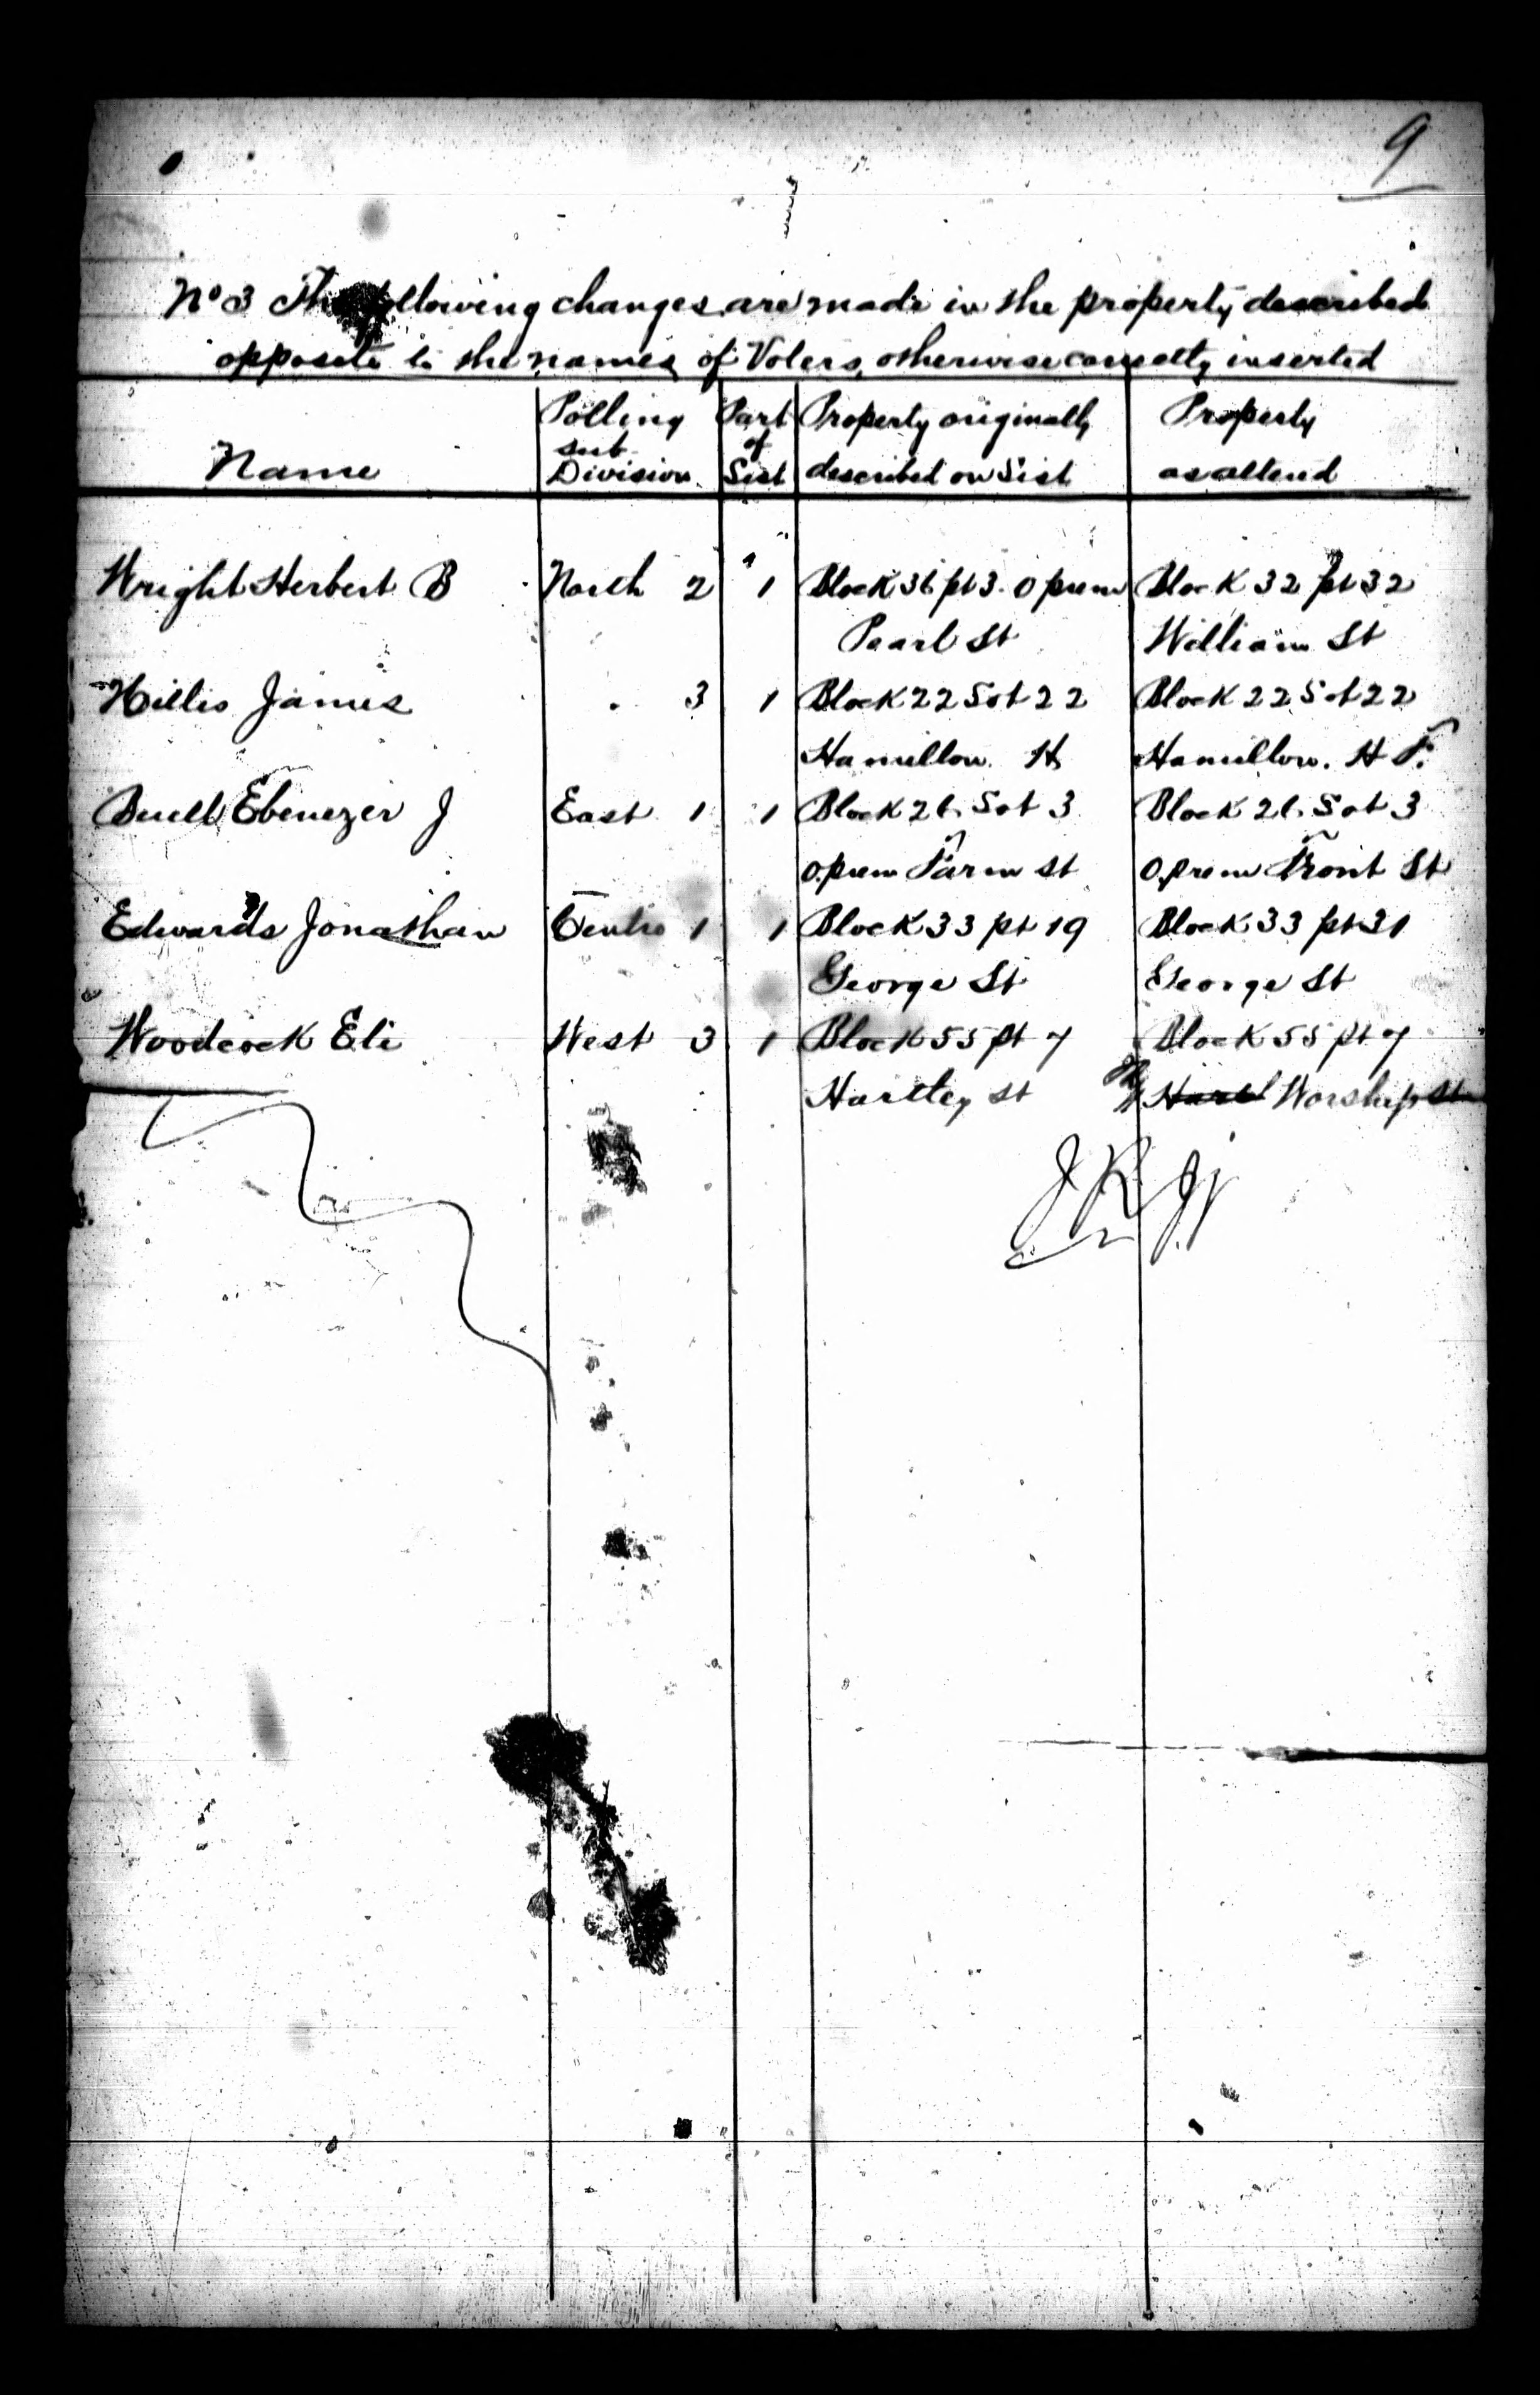 9
No 3 The following changes are made in the property described
opposite to the names of Voters, otherwise correctly inserted
Name
Polling sub Division
Part of List
Property originally described on List
Property as altered
Wright Herbert B North 2 1 Block 36 pt 3. O prem Block 32 pt 32
Pearl St William St
Hillis James " 3 1 Block 22 Lot 22 Block 22 Lot 22
Hamilton H Hamilton. H F.
Buell Ebenezer J East 1 1 Block 26. Lot 3 Block 26. Lot 3
O. prem Farm St O. prem Front St
Edwards Jonathan Centre 1 1 Block 33 pt 19 Block 33 pt 31
George St George St
Woodcock Eli West 3 1 Block 55 pt 7 Block 55 pt 7
Hartley St Worship St
J R J J